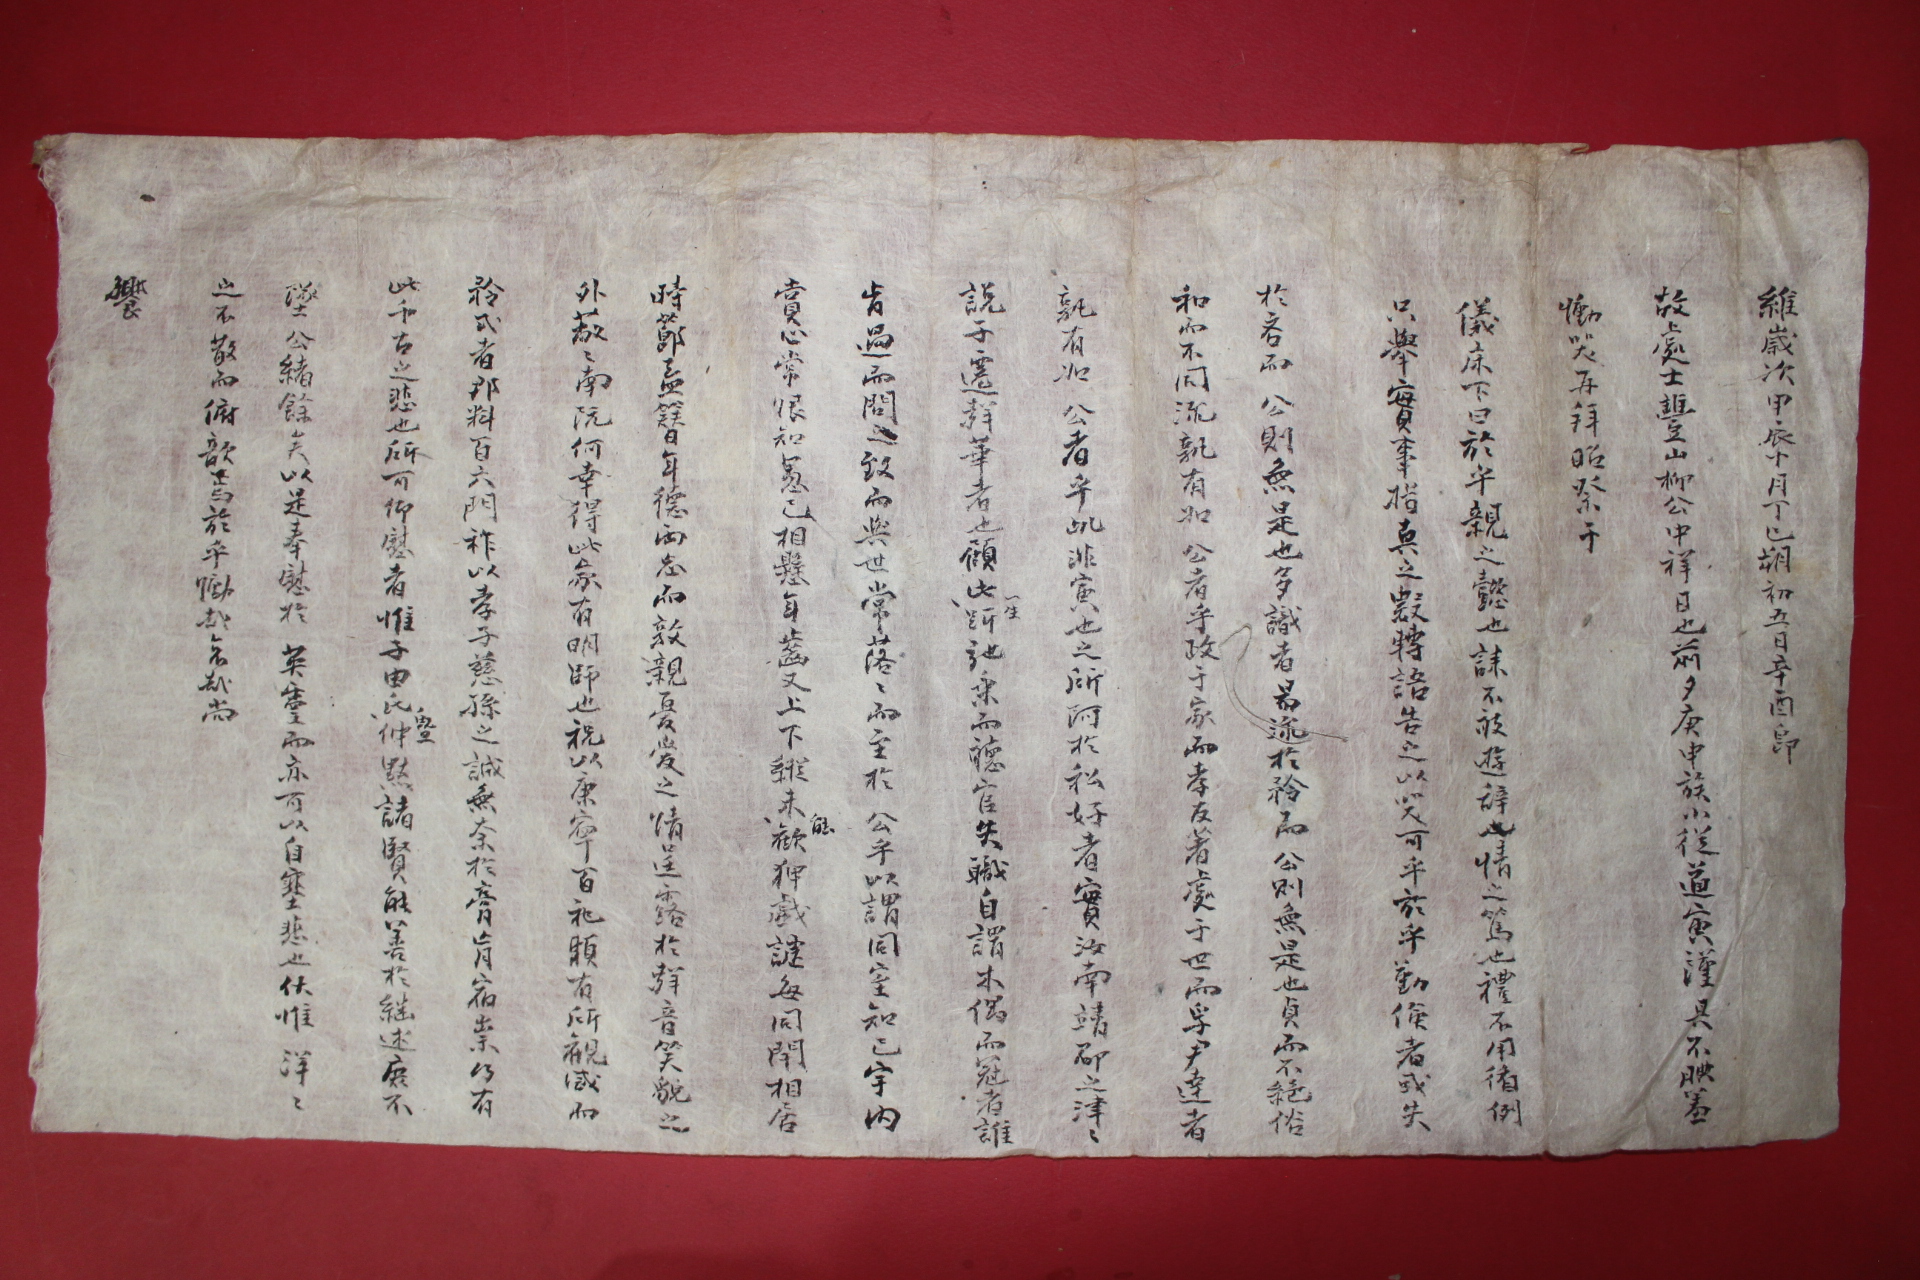 維歲次甲辰十月丁巳朔初五日辛酉卽
故處士豊山柳公中祥日也前夕庚申族小從道寅謹具不腆羞
慟哭再拜昭祭于
儀床下曰於乎親之懿也誄不敢遊辭也情之篤也禮不用循例
只擧實事指眞之數轉語告之以哭可乎於乎勤儉者或失
於吝而 公則無是也多識者易流於矜而 公則無是也貞而不絶俗
和而不同流孰有如 公者乎政于家而孝友著處于世而孚尹達者
孰有如 公者乎此非寅也之所阿於私好者實汝南靖節之津々
說于遷群華者也顧此一生跅弛乘而聽官失職自謂木偶而冠者誰
肯過而問之致而與世常落々而至於 公乎以謂同室知己宇內
賞心常恨知䓤已相懸年齒又上下縱未能歡狎戲謔每同閈相居
時節盍簪日年德兩忘而敦親憂愛之情逞露於辭音笑貌之
外蔽々南阮何幸得此家有明師也祝以康寧百祀賴有所觀感而
矜式者那料百六門祚以孝子慈孫之誠無奈於膏肓宿祟乃有
此千古之悲也所可仰慰者惟子由氏仲與默諸賢能善於継述庶不
墜 公緖餘矣以是奉慰於 英靈而亦可以自塞悲也伏惟 洋々
之不散而俯歆焉於乎慟哉哀哉尙
饗